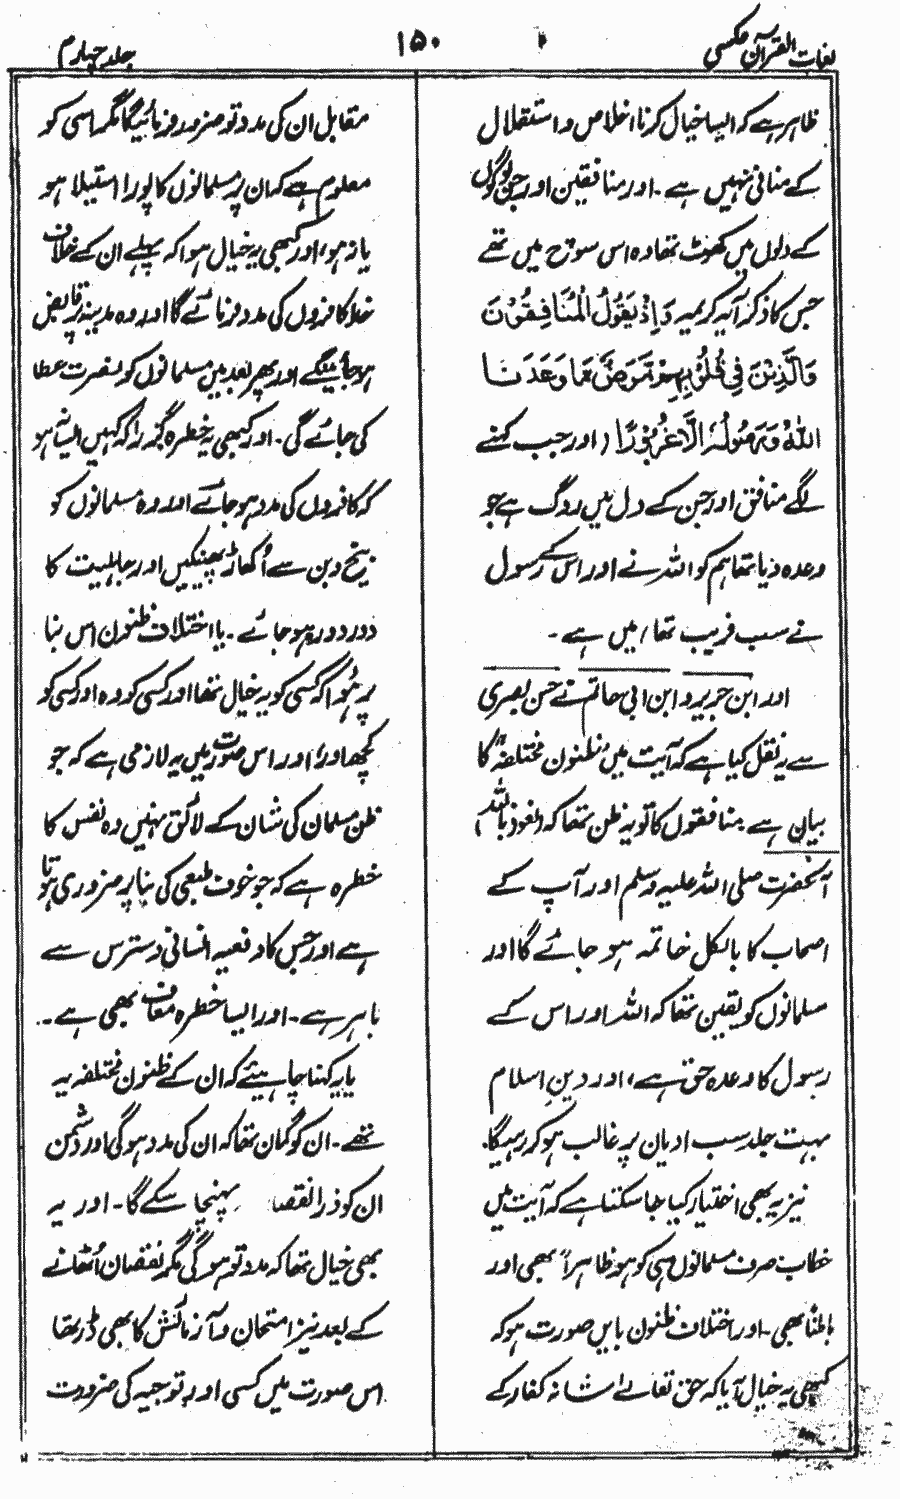 لغات القرآن عکسی
۱۵۰
جلد چہارم
ظاہر ہے کہ ایسا خیال کرنا اخلاص و استقلال
کے منافی نہیں ہے۔ اور منافقین اور جن لوگوں
کے دلوں میں کھوٹ تھا وہ اس سوچ میں تھے
جس کا ذکر آیہ کریمیہ وَاِذْ یَقُوْلُ الْمُنَافِقُوْنَ
وَالَّذِیْنَ فِیْ قُلُوْبِهِمْ مَّرَضٌ مَّا وَعَدَنَا
اللّٰهُ وَرَسُوْلُهٗ اِلَّا غُرُوْرًا (اور جب کہنے
لگے منافق اور جن کے دل میں روگ ہے جو
وعدہ دیا تھا ہم کو اللہ نے اور اس کے رسول
نے سب فریب تھا) میں ہے۔
اور ابن جریر و ابن ابی حاتم نے حسن بصری
سے یہ نقل کیا ہے کہ آیت میں ظنون مختلفہ کا
بیان ہے منافقوں کا تو یہ ظن تھا کہ (نعوذ باللہ)
آنحضرت صلی اللہ علیہ وسلم اور آپ کے
اصحاب کا بالکل خاتمہ ہو جائے گا اور
مسلمانوں کو یقین تھا کہ اللہ اور اس کے
رسول کا وعدہ حق ہے، اور دینِ اسلام
بہت جلد سب ادیان پر غالب ہو کر رہیگا۔
نیز یہ بھی اختیار کیا جا سکتا ہے کہ آیت میں
خطاب صرف مسلمانوں ہی کو ہو ظاہراً بھی اور
باطناً بھی۔ اور اختلاف ظنون بایں صورت ہو کہ
کبھی یہ خیال آیا کہ حق تعالےٰ امثانہ کفار کے
مقابل ان کی مدد تو ضرور فرمائیگا مگر اسی کو
معلوم ہے کہ ان پر مسلمانوں کا پورا استیلا ہو
یا نہ ہو، اور کبھی یہ خیال ہوا کہ پہلے ان کے خلاف
خدا کافروں کی مدد فرمائے گا اور وہ مدینہ پر قابض
ہو جائینگے اور پھر بعد میں مسلمانوں کو نصرت عطا
کی جائے گی۔ اور کبھی یہ خطرہ گزرا کہ کہیں ایسا نہ ہو
کہ کافروں کی مدد ہو جائے اور وہ مسلمانوں کو
بیخ و بن سے اُکھاڑ پھینکیں اور جاہلیت کا
دور دورہ ہو جائے۔ یا اختلاف ظنون اس بنا
پر ہُوا کہ کسی کو یہ خیال تھا اور کسی کو وہ اور کسی کو
کچھ اور، اور اس صورت میں یہ لازمی ہے کہ جو
ظن مسلمان کی شان کے لائق نہیں وہ نفس کا
خطرہ ہے کہ جو خوف طبعی کی بنا پر ضروری ہوتا
ہے اور جس کا دفعیہ انسانی دسترس سے
باہر ہے۔ اور ایسا خطرہ معاف بھی ہے۔
یا یہ کہنا چاہیئے کہ ان کے ظنون مختلفہ یہ
تھے۔ ان کو گمان تھا کہ ان کی مدد ہوگی اور دشمن
ان کو ذرا نقصان پہنچا سکے گا۔ اور یہ
بھی خیال تھا کہ مدد تو ہوگی مگر نقصان اُٹھانے
کے بعد نیز امتحان و آزمائش کا بھی ڈر تھا
اس صورت میں کسی اور توجیہ کی ضرورت